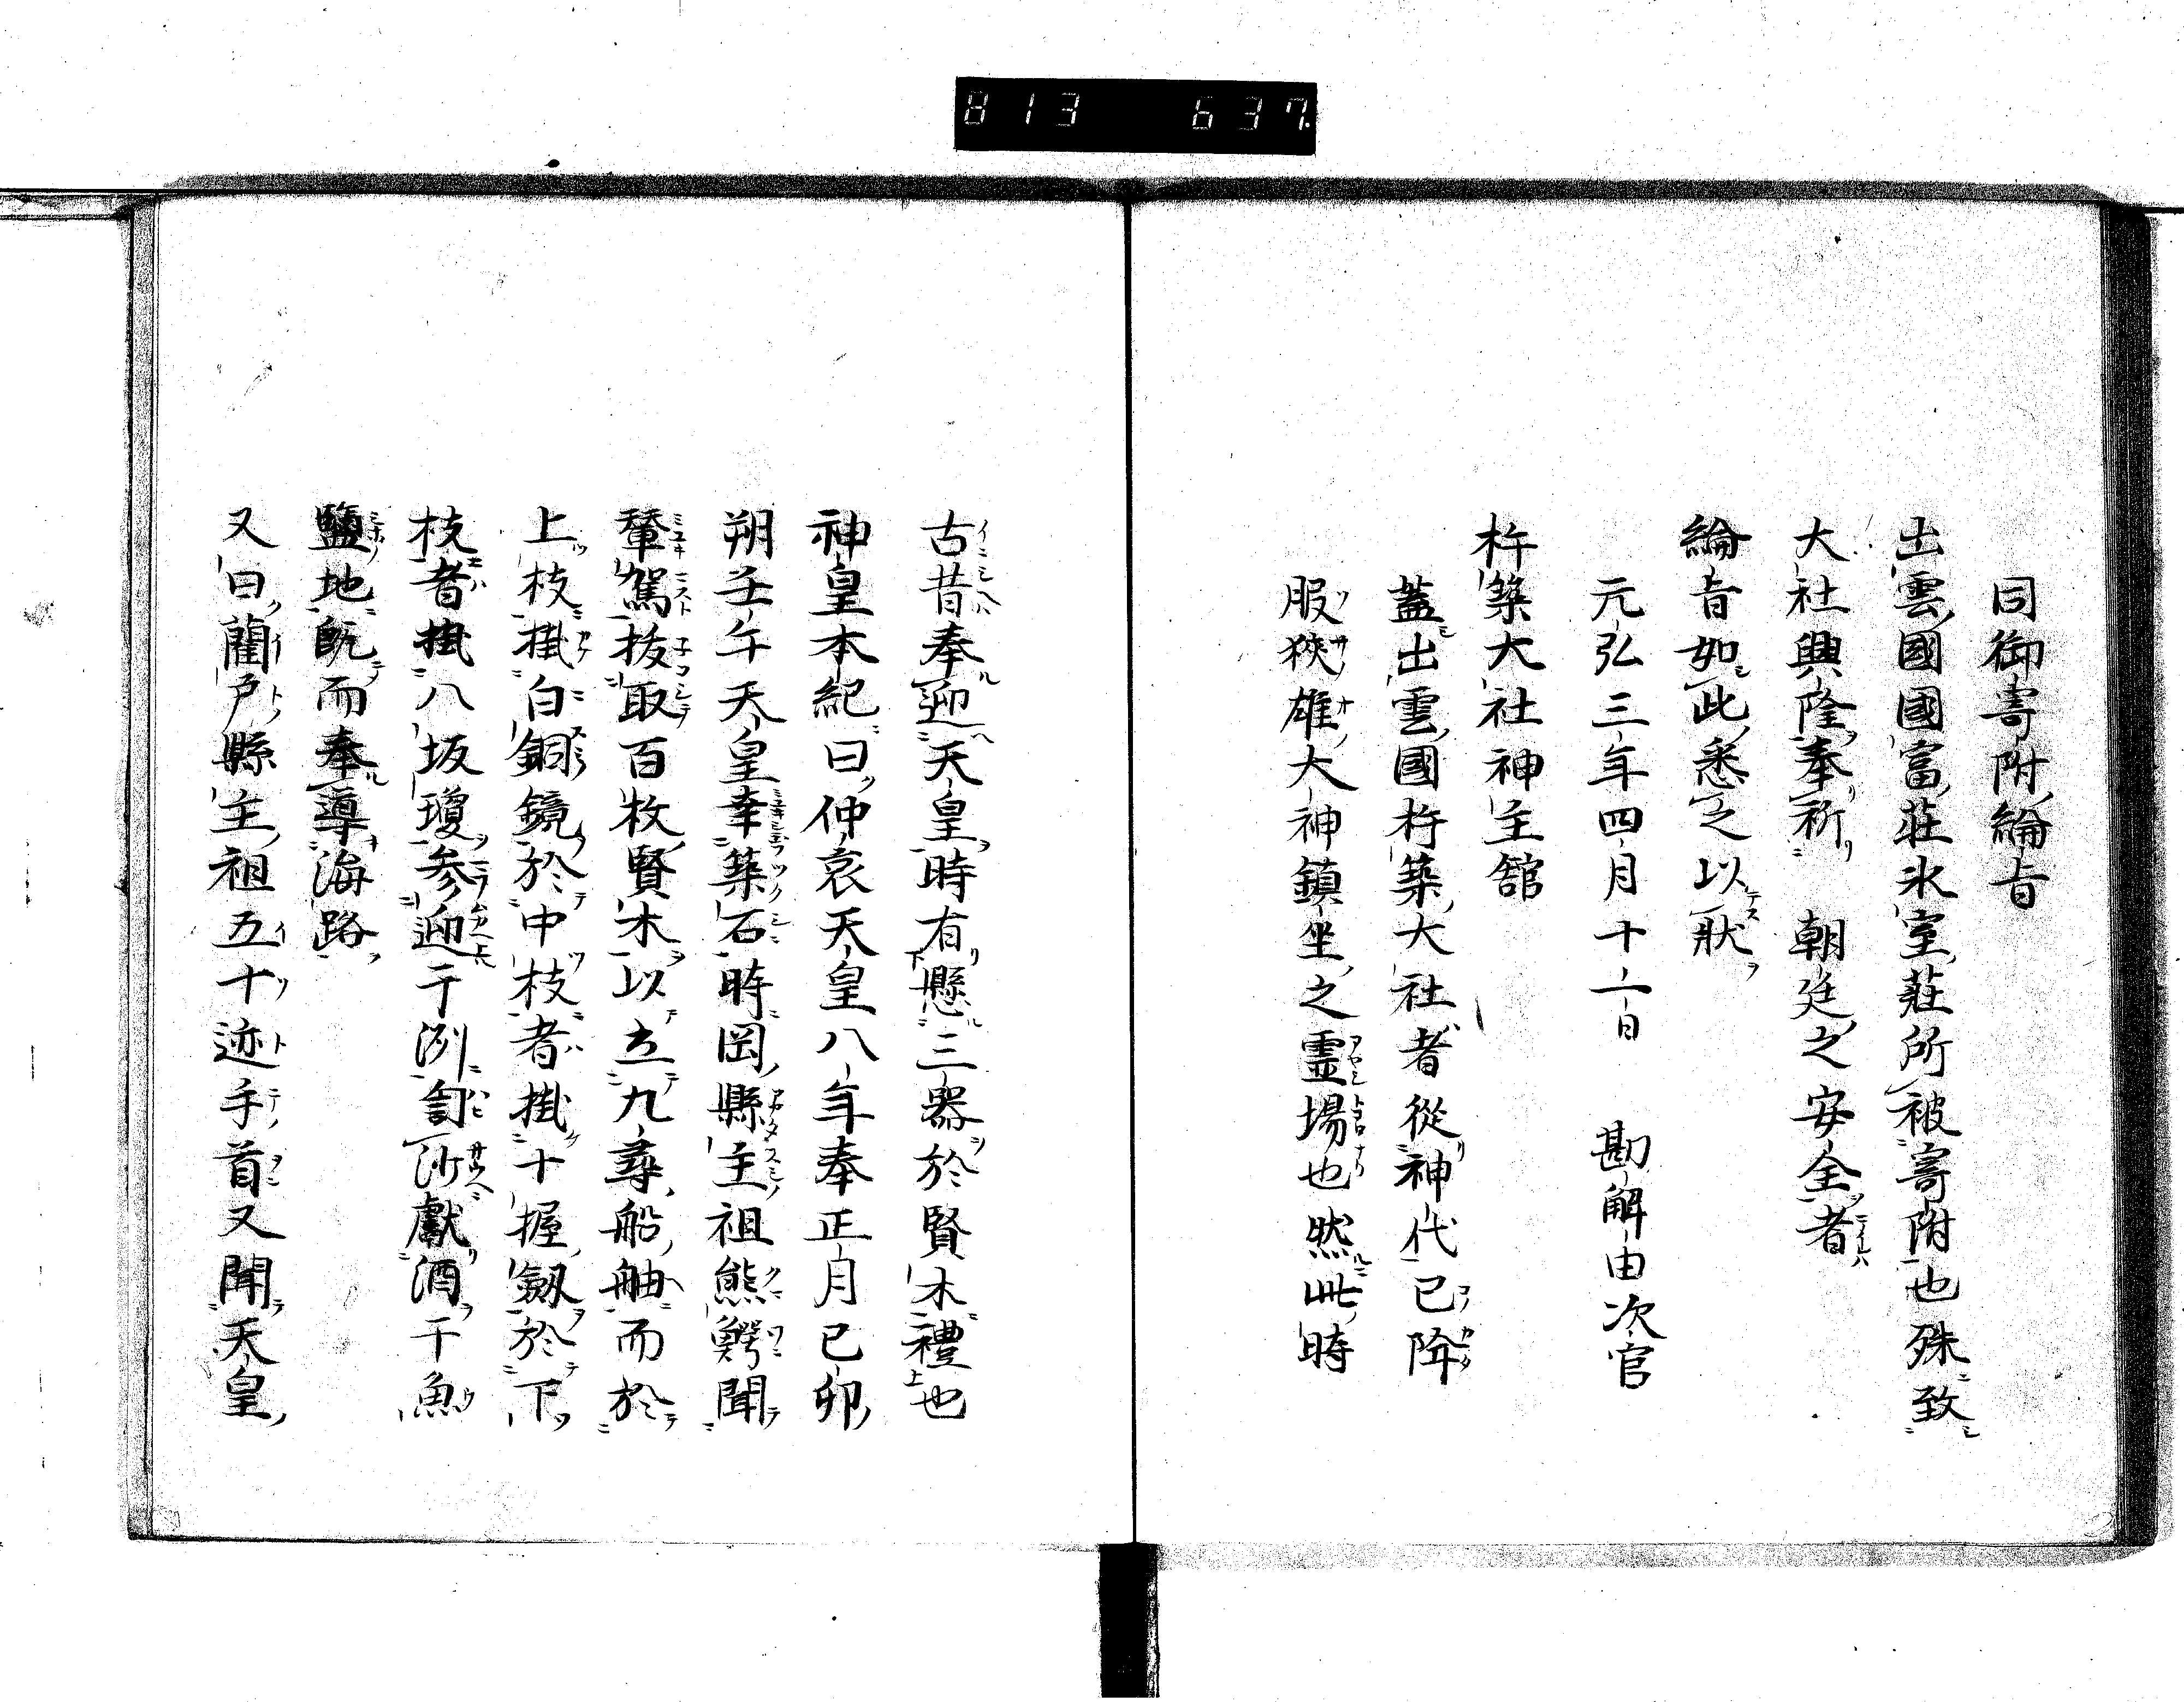 813 637
同御寄附綸旨
出雲國國富莊氷室莊所被寄附也殊致
大社興隆奉祈 朝廷之安全者
綸旨如此悉之以狀
元弘三年四月十一日 勘解由次官
杵築大社神主舘
蓋出雲國杵築大社者從神代已降
服狹雄大神鎮坐之霊場也然此時
古昔奉迎天皇時有懸三器於賢木禮也
神皇本紀曰仲哀天皇八年奉正月已卯
朔壬午天皇幸築石時岡縣主祖熊鰐聞
輦駕抜取百枚賢木以立九尋船舳而於
上枝掛白銅鏡於中枝者掛十握劔於下
枝者掛八坂瓊参迎于渕訇沂獻酒干魚
鹽地既而奉導海路
又曰藺戸縣主祖五十迹手首又聞天皇